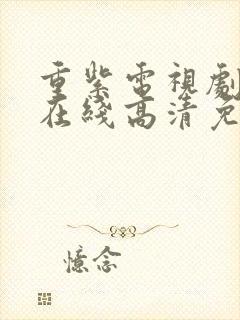 重紫電視劇
在綫高清免
憶念